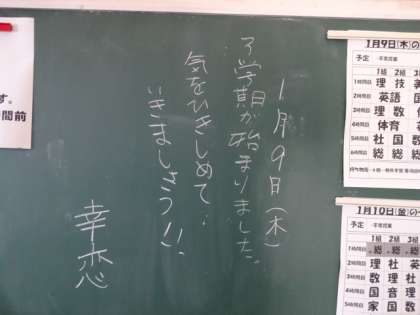 1月9日(木)
3学期が始まりました。
気をひきしめて、
いきましょう!!
幸恋
す。
間前
1月9日(木)の
予定
1組 2組 3
1時間目 理 技 美
2時間目 英語 国
3時間目 理 数
4時間目 体育
5時間目 社 国 数
6時間目 総 総 総
1月10日(金)の
予定
1組 2組 3
1時間目 総 総 総
2時間目 理 社 英
3時間目 数 理 社
4時間目 国 音 理
5時間目 家 国 数